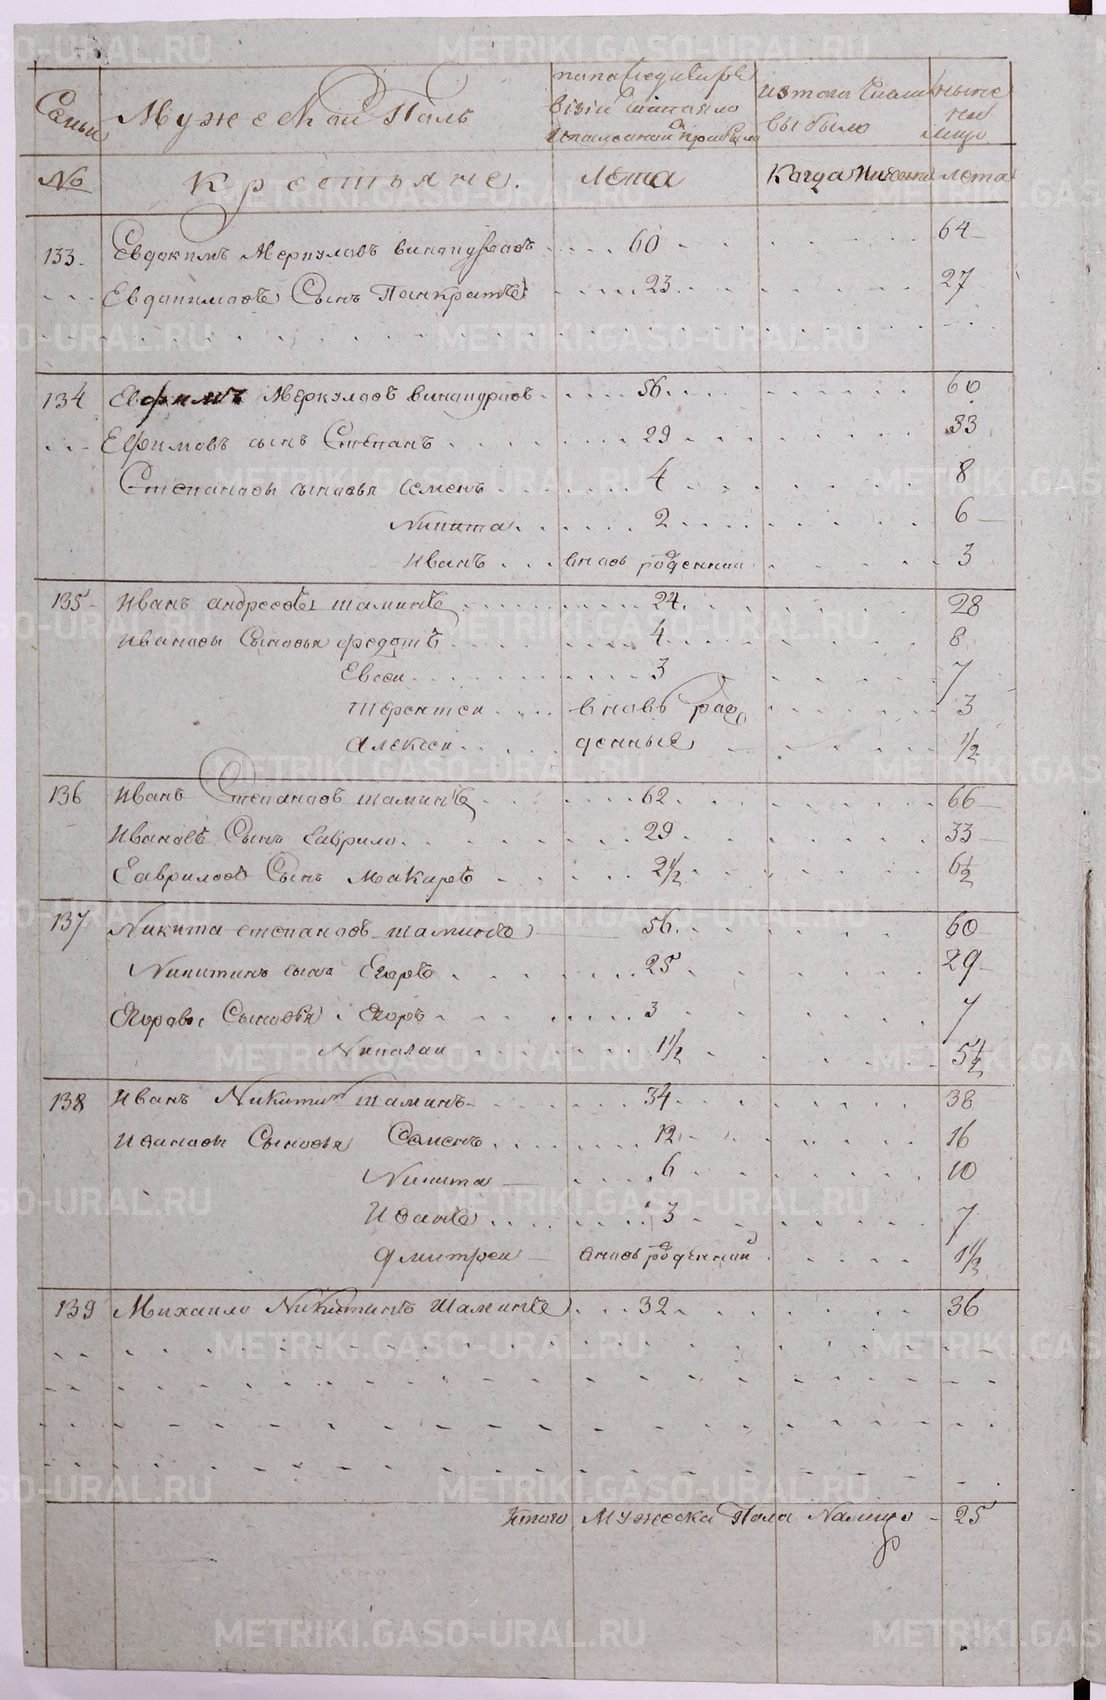 Семьи
Мужеской Полъ
попоследней ре
визіи Состояло
и после оной прибыло
из того Числа
выбыло
ныне
на
лицо
№
Крестьяне.
лета
Когда Именно
лета
133 Евдокимъ Меркуловъ винокуровъ 60 64
Евдокимовъ Сынъ Панкратъ 23 27
134 Евфимъ Меркуловъ винокуровъ 56 60
Ефимовъ сынъ Степанъ 29 33
Степановы сыновья Семенъ 4 8
Никита 2 6
Иванъ вновь рожденной 3
135 Иванъ андреевъ шаминъ 24 28
Ивановы Сыновья федотъ 4 8
Евсеи 3 7
Терентеи вновь рож 3
алексеи денные 1/2
136 Иванъ Степановъ шаминъ 62 66
Ивановъ Сынъ Гаврило 29 33
Гавриловъ Сынъ Макаръ 2 1/2 6 1/2
137 Никита степановъ шаминъ 56 60
Никитинъ сынъ Егоръ 25 29
Егоровы Сыновья Егоръ 3 7
Николаи 1 1/2 5 1/2
138 Иванъ Никитин шаминъ 34 38
Ивановы Сыновья Семенъ 12 16
Никита 6 10
Иванъ 3 7
Дмитреи вновь рожденнои 1 1/2
139 Михаило Никитинъ Шаминъ 32 36
Итого Мужеска Пола Налицо 25
METRIKI.GASO-URAL.RU